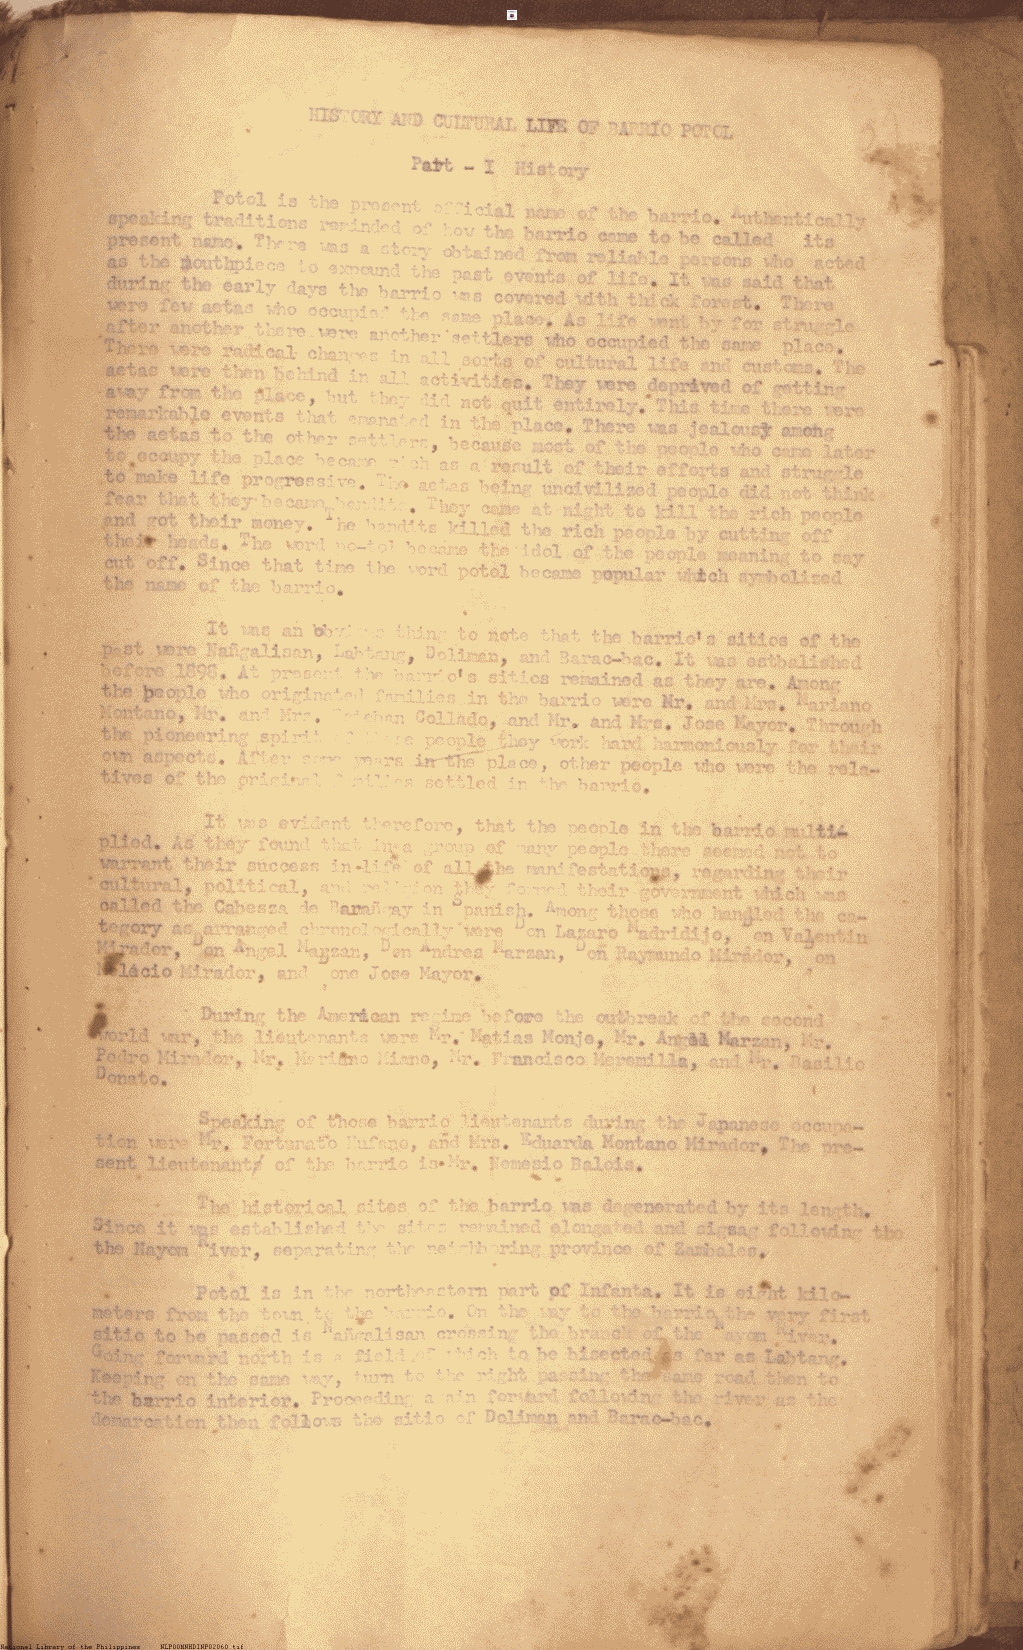 HISTORY AND CULTURAL LIFE OF BARRIO POTOL
Part - I History
Potol is the present official name of the barrio. Authentically
speaking traditions reminded of how the barrio came to be called its
present name. There was a story obtained from reliable persons who acted
as the mouthpiece to expound the past events of life. It was said that
during the early days the barrio was covered with thick forest. There
were few aetas who occupied the same place. As life went by for struggle
after another there were another settlers who occupied the same place.
There were radical changes in all sorts of cultural life and customs. The
aetas were then behind in all activities. They were deprived of getting
away from the place, but they did not quit entirely. This time there were
remarkable events that emanated in the place. There was jealousy among
the aetas to the other settlers, because most of the people who came later
to occupy the place became rich as a result of their efforts and struggle
to make life progressive. The aetas being uncivilized people did not think
fear that they became bandits. They came at night to kill the rich people
and got their money. The bandits killed the rich people by cutting off
their heads. The word po-tol became the idol of the people meaning to say
cut off. Since that time the word potol became popular which symbolized
the name of the barrio.
It was an obvious thing to note that the barrio's sitios of the
past were Nañgalisan, Labtang, Doliman, and Barac-bac. It was estbelished
before 1898. At present the barrio's sitios remained as they are. Among
the people who originated families in the barrio were Mr. and Mrs. Mariano
Montano, Mr. and Mrs. Esteban Collado, and Mr. and Mrs. Jose Mayor. Through
the pioneering spirit of these people they work hard harmoniously for their
own aspects. After some years in the place, other people who were the rela-
tives of the original families settled in the barrio.
It was evident therefore, that the people in the barrio multi-
plied. As they found that in a group of many people there seemed not to
warrant their success in life of all the manifestations, regarding their
cultural, political, and religion they formed their government which was
called the Cabessa de Barañgay in Spanish. Among those who handled the ca-
tegory as arranged chronologically were Don Lazaro Madridijo, Don Valentin
Mirador, Don Angel Marzan, Don Andres Marzan, Don Raymundo Mirador, Don
Mirador, and Done Jose Mayor.
During the American regime before the outbreak of the second
world war, the lieutenants were Mr. Matias Monje, Mr. Angel Marzan, Mr.
Pedro Mirador, Mr. Mariano Miano, Mr. Francisco Meremilla, and Mr. Basilio
Donato.
Speaking of those barrio lieutenants during the Japanese occupa-
tion were Mr. Fortunato Nufano, and Mrs. Eduarda Montano Mirador, The pre-
sent lieutenant of the barrio is Mr. Nemesio Balois.
The historical sites of the barrio was degenerated by its length.
Since it was established the sites remained elongated and sigsag following the
the Nayom River, separating the neighboring province of Zambales.
Potol is in the northeastern part of Infanta. It is eight kilo-
meters from the town to the barrio. On the way to the barrio the very first
sitio to be passed is Nañgalisan crossing the branch of the Nayom River.
Going forward north is a field of which to be bisected as far as Labtang.
Keeping on the same way, turn to the right passing the same road then to
the barrio interior. Proceeding again forward following the river as the
demarcation then follows the sitio of Doliman and Barac-bac.
National Library of the Philippines NLPOONNHDINP02060.tif